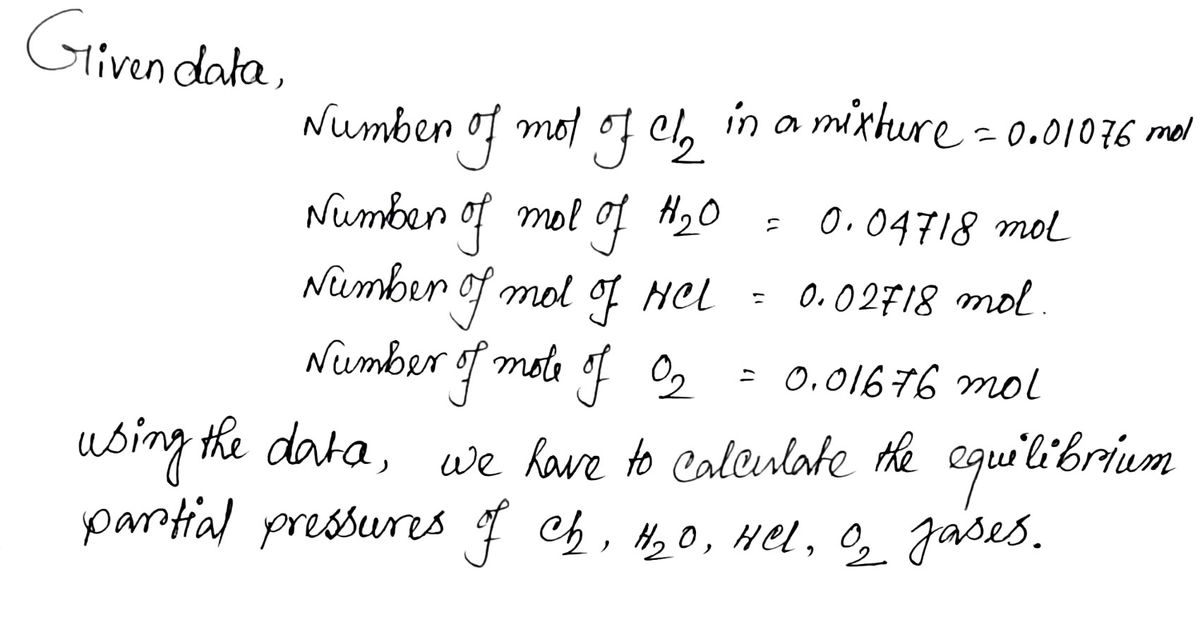 Given data,
Number of mol of Cl2 in a mixture = 0.01076 mol
Number of mol of H2O = 0.04718 mol
Number of mol of HCl = 0.02718 mol.
Number of mole of O2 = 0.01676 mol
using the data, we have to calculate the equilibrium
partial pressures of Cl2, H2O, HCl, O2 gases.